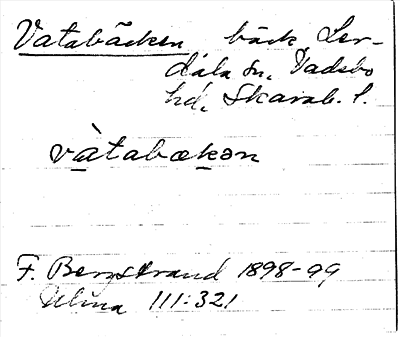 Vatabäcken bäck Ler-
dala sn, Vadsbo
hd, Skarab. l.
vàtabækən
F. Bergstrand 1898-99
111:321